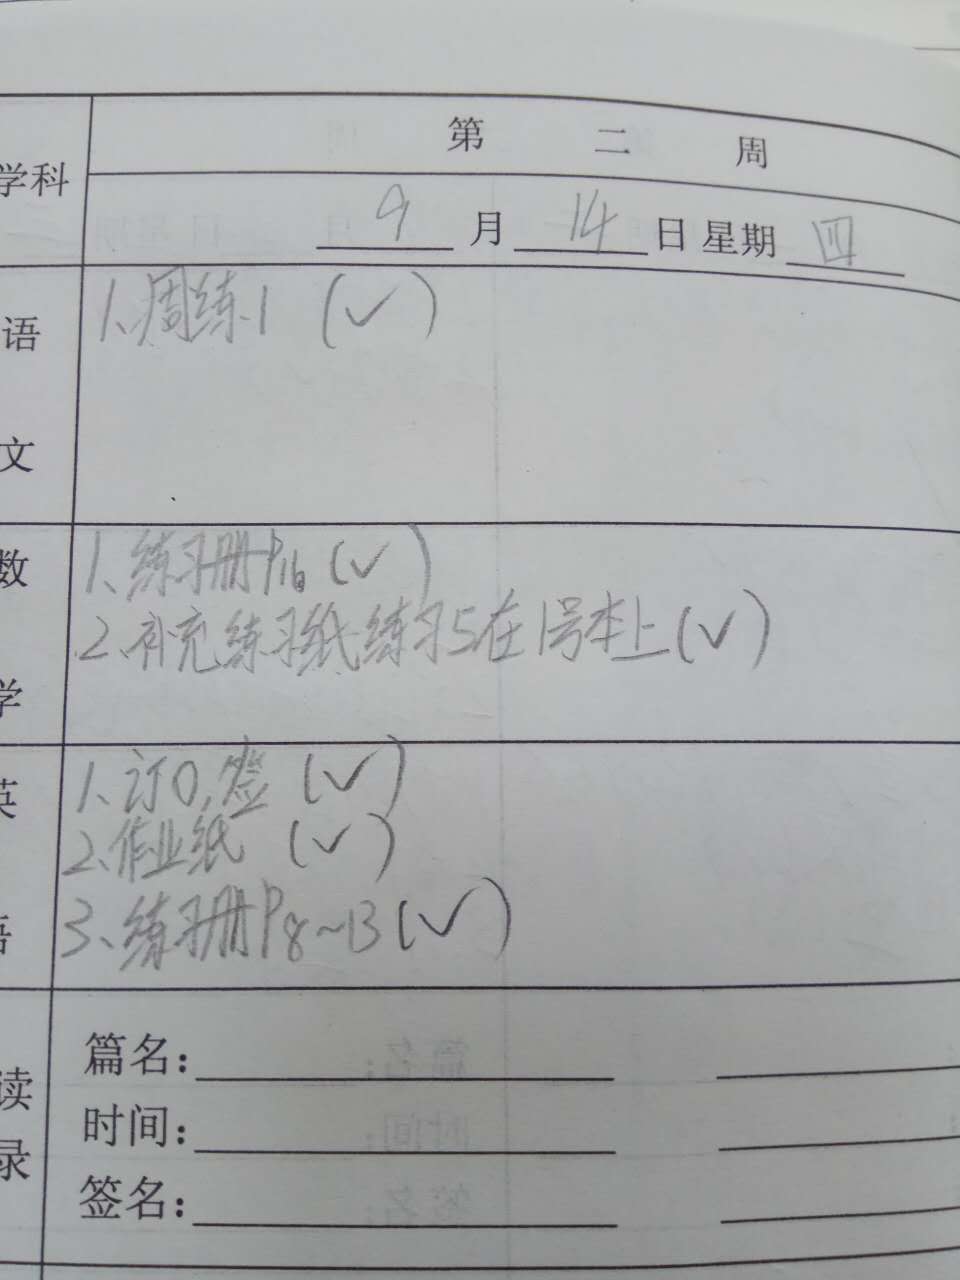 第 二 周
学科
9 月 14 日 星期 四
语
文
1、周练1 (√)
数
学
1、练习册P16 (√)
2、补充练习纸练习5在1号本上(√)
英
语
1、订0,签 (√)
2、作业纸 (√)
3、练习册P8~13(√)
读
录
篇名：
时间：
签名：